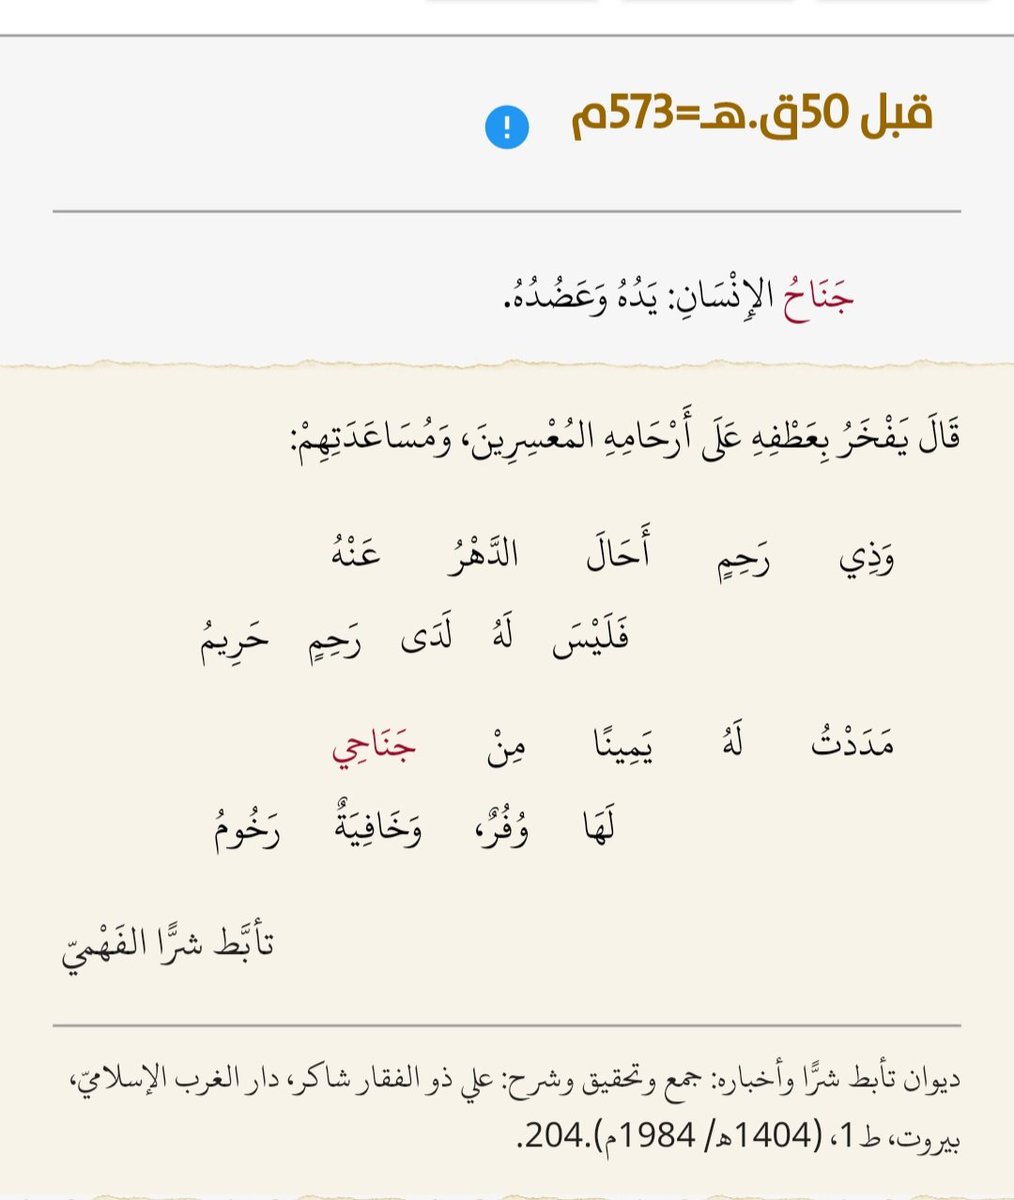 قبل 50ق.هـ=573م
جَنَاحُ الإِنْسَانِ: يَدُهُ وَعَضُدُهُ.
قَالَ يَفْخَرُ بِعَطْفِهِ عَلَى أَرْحَامِهِ المُعْسِرِينَ، وَمُسَاعَدَتِهِمْ:
وَذِي رَحِمٍ أَحَالَ الدَّهْرُ عَنْهُ
فَلَيْسَ لَهُ لَدَى رَحِمٍ حَرِيمُ
مَدَدْتُ لَهُ يَمِينًا مِنْ جَنَاحِي
لَهَا وُفُرٌ، وَخَافِيَةٌ رَخُومُ
تأبَّط شرًّا الفَهْميّ
ديوان تأبط شرًّا وأخباره: جمع وتحقيق وشرح: علي ذو الفقار شاكر، دار الغرب الإسلاميّ،
بيروت، ط1، (1404هـ/ 1984م).204.